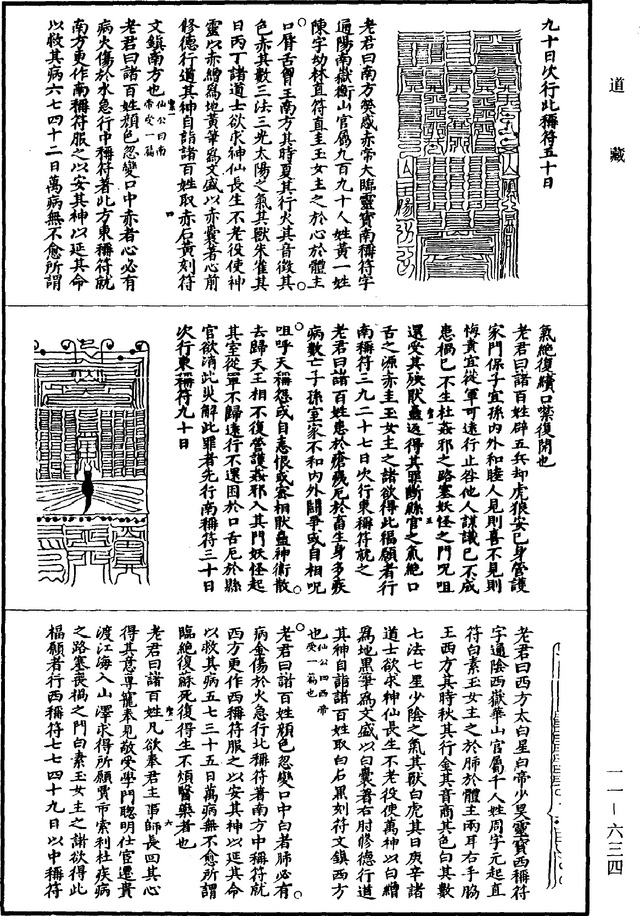 道藏
九十日次行此稱符五十日
老君曰南方熒惑赤帝大臨靈寶南稱符字
通陽南嶽衡山官屬九百九十人姓黃一姓
陳字幼林直符直圭玉女主之於心於體主
口脣舌聲王南方其時夏其行火其音徵其
色赤其數三法三光太陽之氣其獸朱雀其
日丙丁諸道士欲求神仙長生不老役使神
靈以赤繒為地黃筆為文盛以赤囊著心前
修德行道其神自詣諸百姓取赤石黃刻符
文鎮南方也仙公曰南帝受一篇
老君曰諸百姓顏色忽變口中赤者心必有
病火傷於水急行中稱符著此方東稱符就
南方更作南稱符服之以安其神以延其命
以救其病六七四十二日萬病無不愈所謂
氣絕復續口禁復開也
老君曰諸百姓辟五兵却虎狼安己身管護
家門保子宜孫內外和睦人見則喜不見則
悔貴宜從軍可遠行止咎他人謀議已不成
患禍已不生杜姦邪之路塞妖怪之門呪咀
還受其殃獸蠱返得其罪斷縣官之氣絕口
舌之源赤圭玉女主之諸欲得此福願者行
南稱符三九二十七日次行東稱符就之
老君曰諸百姓患於瘡癘厄於畜生身多疾
病數亡子孫室家不和內外鬪爭或自相呪
咀呼天稱怨或自恚恨或客相獸蠱神衛散
去歸天王相不復營護姦邪入其門妖怪起
其室從軍不歸遠行不還困於口舌厄於縣
官欲消此災解此罪者先行南稱符三十日
次行東稱符九十日
老君曰西方太白星白帝少昊靈寶西稱符
字通陰西嶽華山官屬千人姓周字元起直
符白素玉女主之於肺於體主兩耳右手脇
王西方其時秋其行金其音商其色白其數
七法七星少陰之氣其獸白虎其日庚辛諸
道士欲求神仙長生不老役使萬神以白繒
為地黑筆為文盛以白囊著右肘修德行道
其神自詣諸百姓取白石黑刻符文鎮西方
也仙公曰西帝受一篇也
老君曰諸百姓顏色忽變口中白者肺必有
病金傷於火急行比稱符著南方中稱符就
西方更作西稱符服之以安其神以延其命
以救其病五七三十五日萬病無不愈所謂
臨絕復穌死復得生不煩醫藥者也
老君曰諸百姓凡欲奉君王事師長回其心
得其意專寵奉見敬受學門聰明仕宦遷貴
渡江海入山澤求得所願賈市索利杜疾病
之路塞喪禍之門白素玉女主之諸欲得此
福願者行西稱符七七四十九日以中稱符
一一－六三四